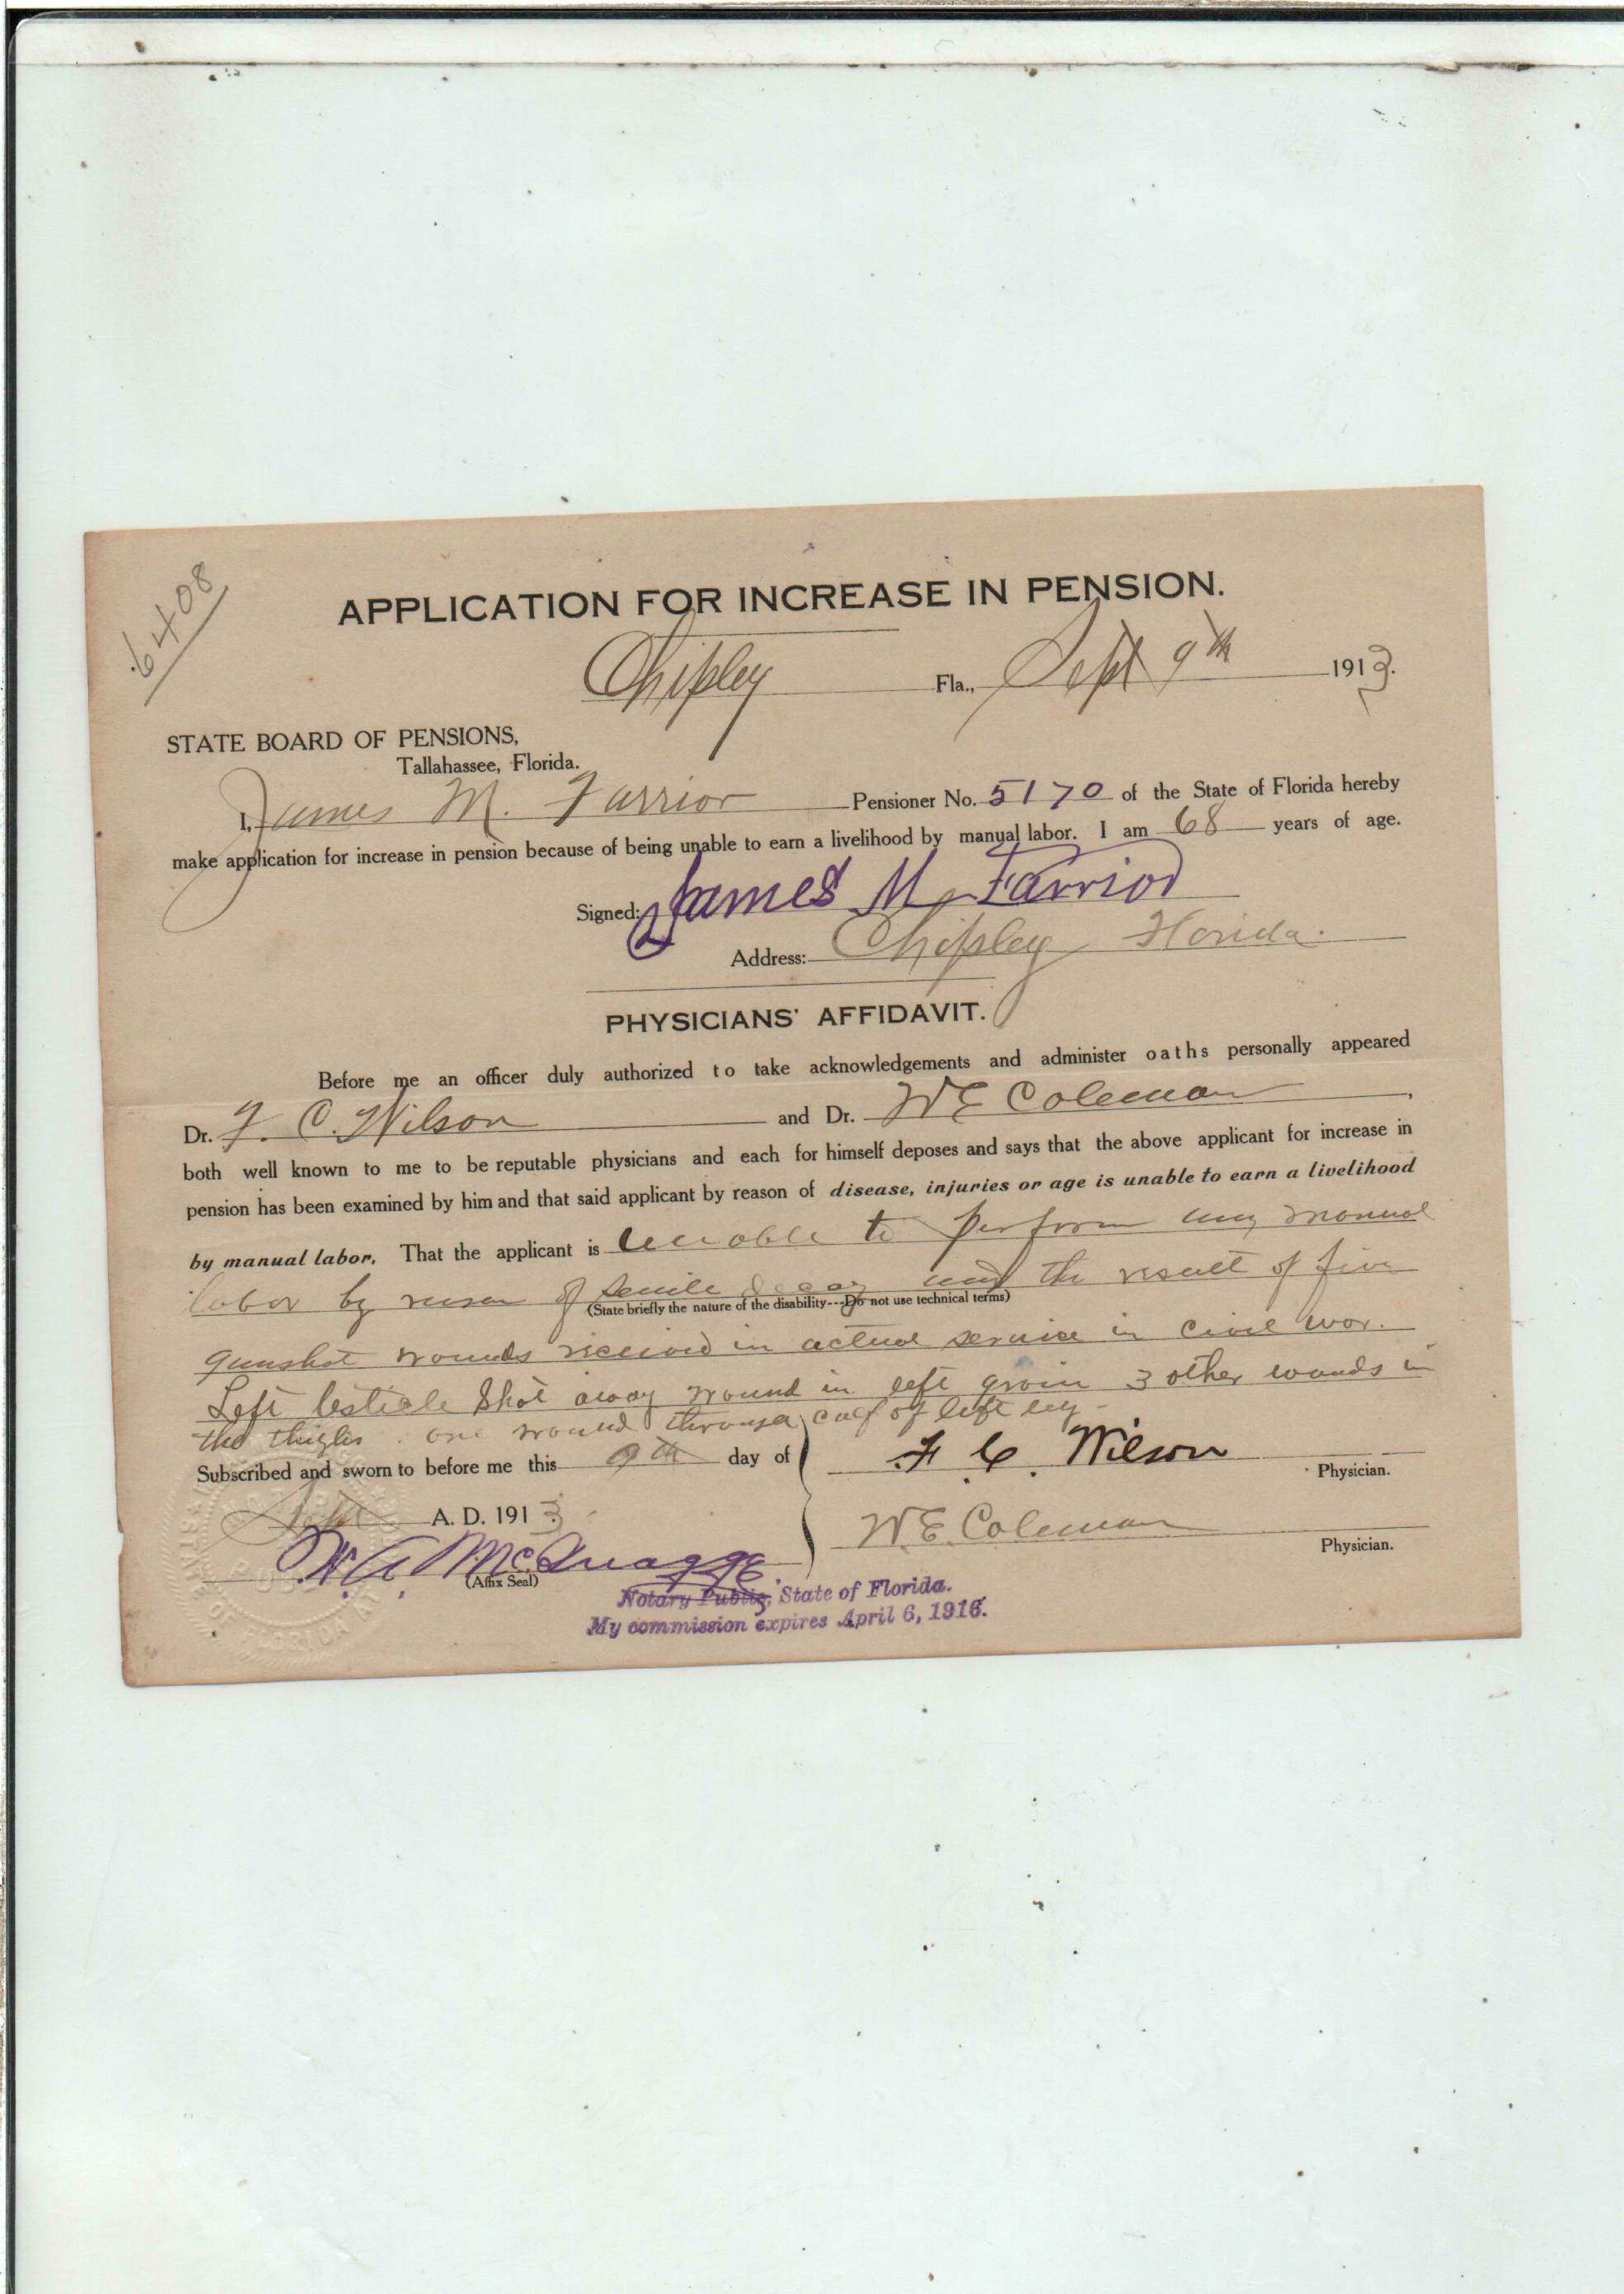 6408
APPLICATION FOR INCREASE IN PENSION.
Chipley Fla., Sept 9th 1913.
STATE BOARD OF PENSIONS,
Tallahassee, Florida.
I, James M. Farrior Pensioner No. 5170 of the State of Florida hereby
make application for increase in pension because of being unable to earn a livelihood by manual labor. I am 68 years of age.
Signed: James M. Farrior
Address: Chipley Florida.
PHYSICIANS' AFFIDAVIT.
Before me an officer duly authorized to take acknowledgements and administer oaths personally appeared
Dr. F. C. Wilson and Dr. W E Coleman
both well known to me to be reputable physicians and each for himself deposes and says that the above applicant for increase in
pension has been examined by him and that said applicant by reason of disease, injuries or age is unable to earn a livelihood
by manual labor. That the applicant is unable to perform any manual
labor by reason of senile decay and the result of five
(State briefly the nature of the disability---Do not use technical terms)
gunshot wounds received in actual service in civil war.
Left testicle shot away wound in left groin 3 other wounds in
the thighs. one wound through calf of left leg-
Subscribed and sworn to before me this 9th day of F. C. Wilson Physician.
Sept A. D. 1913
W. E. Coleman Physician.
W. A. McQuagge
(Affix Seal)
Notary Public, State of Florida.
My commission expires April 6, 1916.